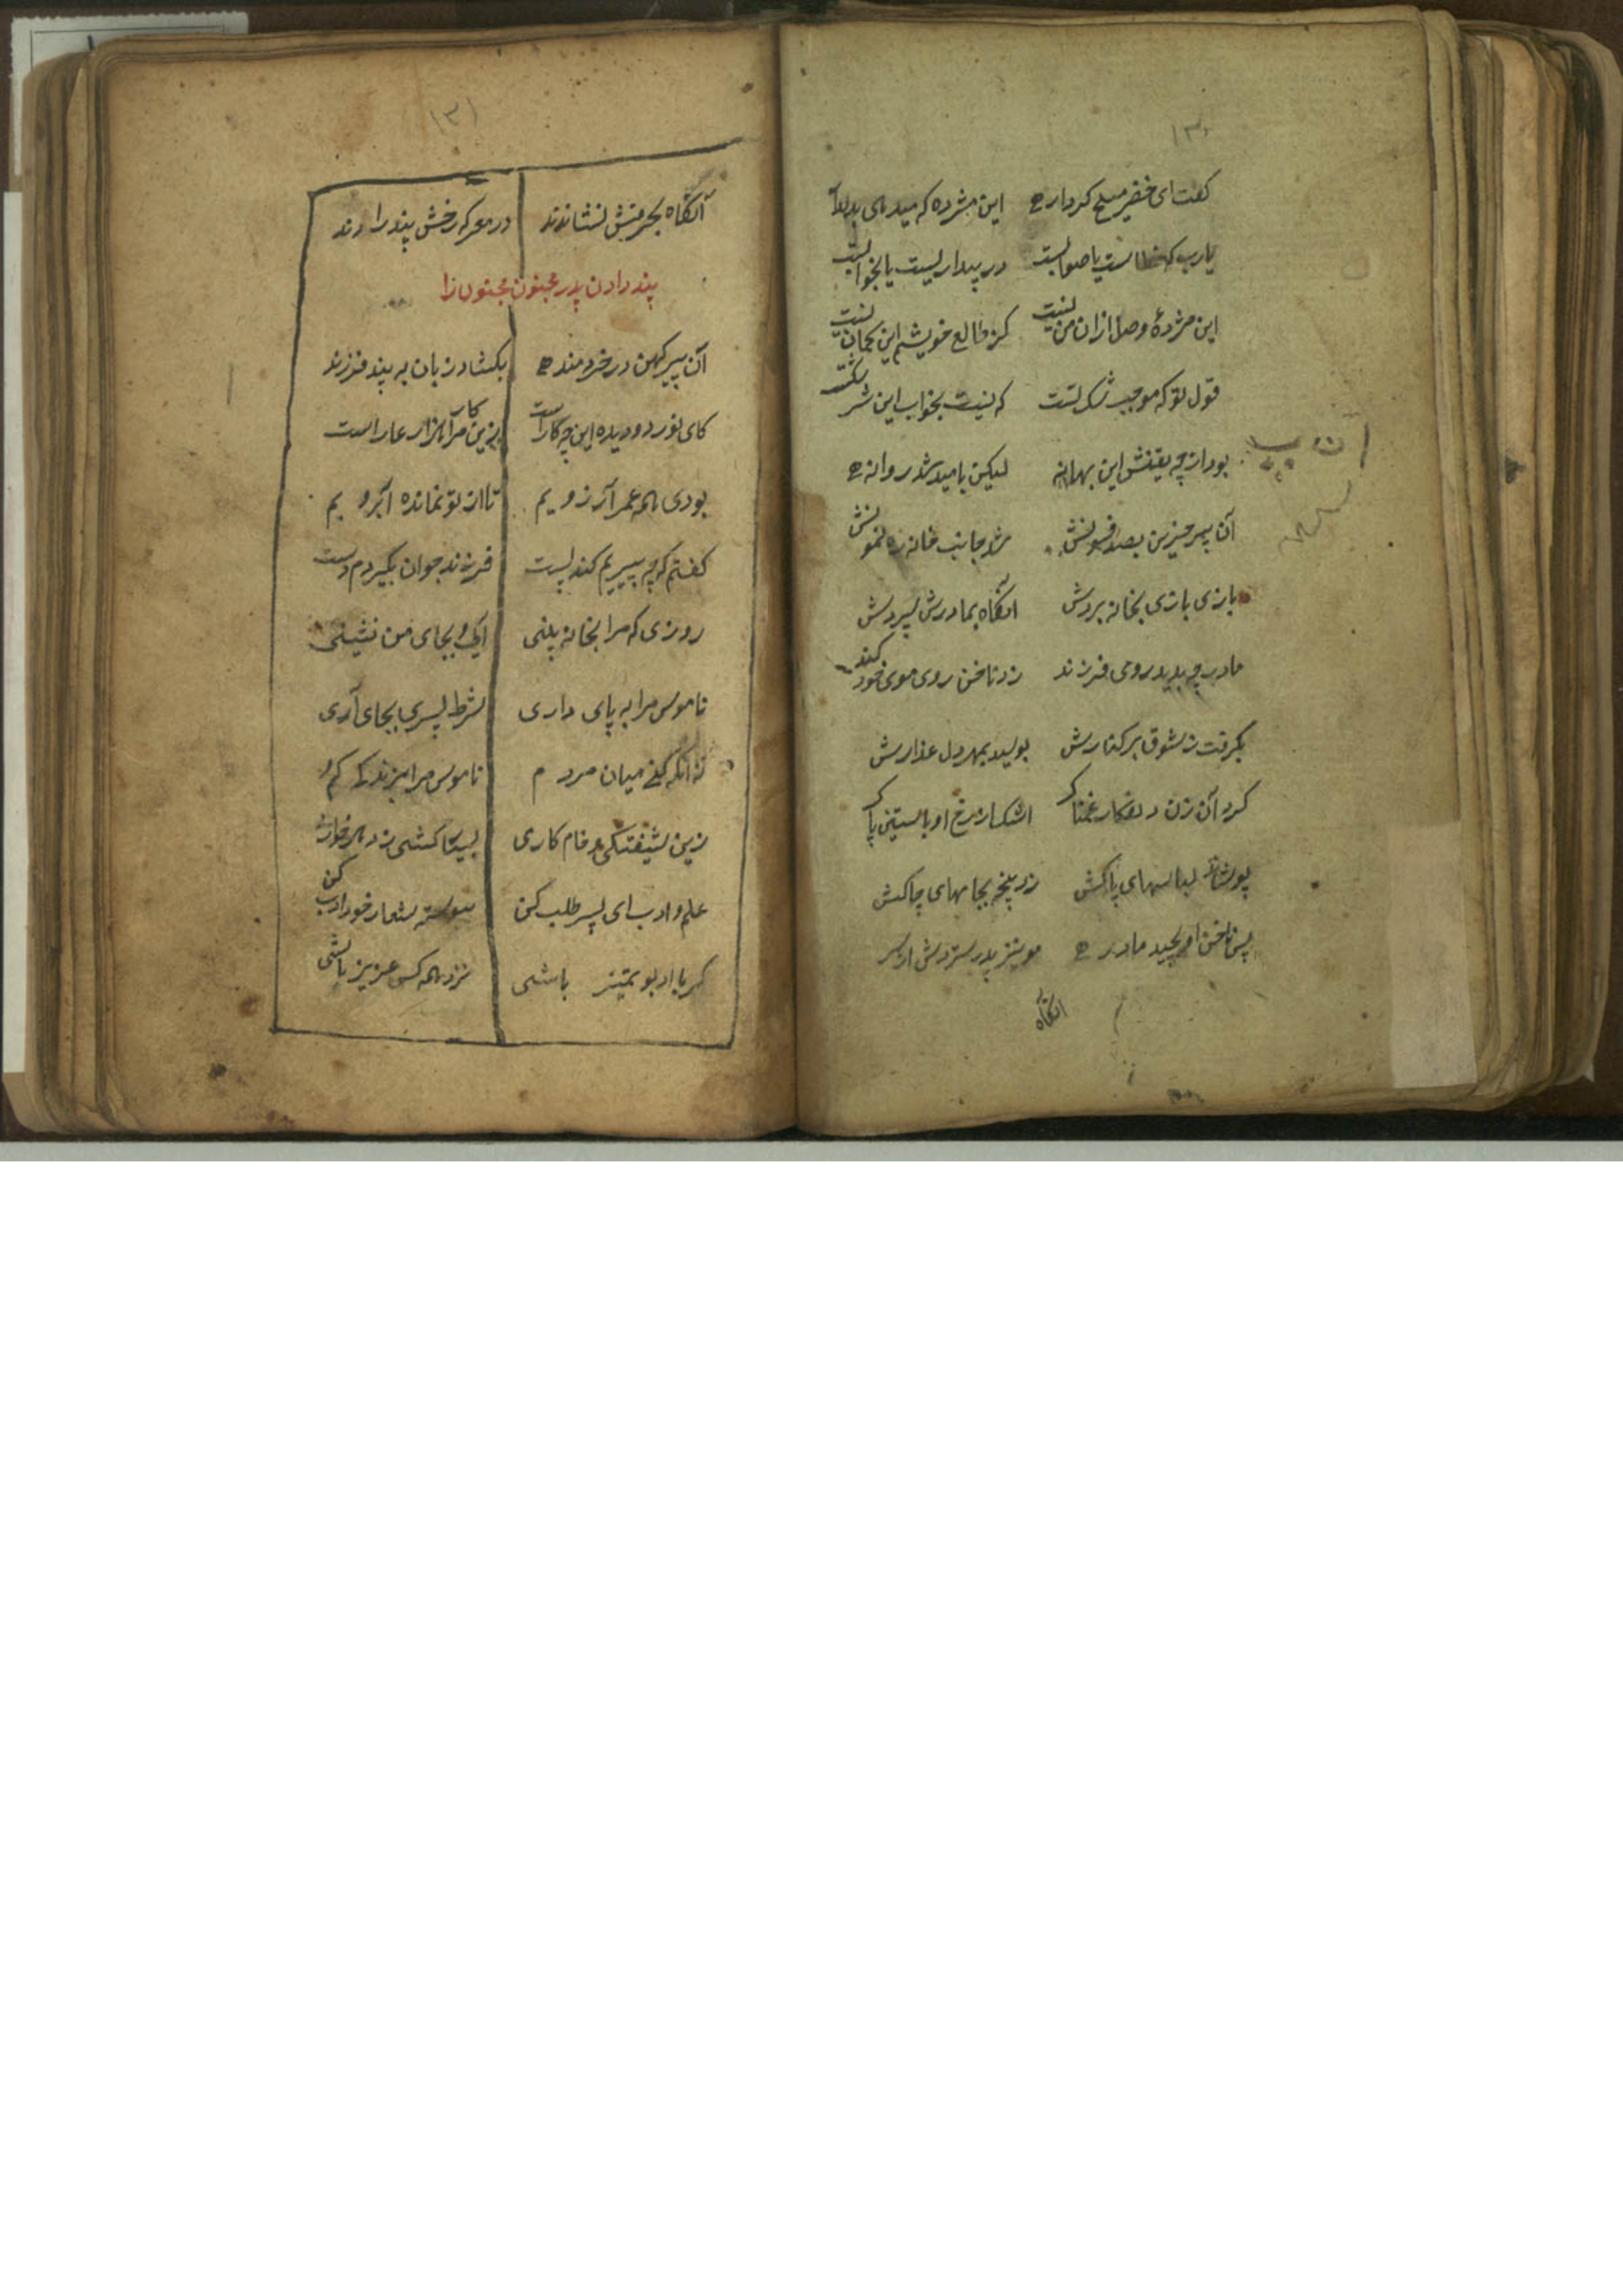 ۱۳۰
گفت ای خضر مسیح کردار این مژده که میدهی
یارب که خطاست یا صوابست در بیداریست یا بخوابست
این مژدهٔ وصل ازان من نیست کز طالع خویشم این گمان نیست
قول تو که موجب شکست که نیست بخواب این
بود ار چه یقینش این بهانه لیکن بامید شد روانه
آن پیر حزین بصد فسونش شد جانب خانه ره نمونش
بازی بازی بخانه بردش آنگاه بمادرش سپردش
مادر چو بدید روی فرزند زد ناخن روی موی خود کند
بگرفت ز شوق بر کنارش بوسید بمهر دل عذارش
کرد آن زن دلفکار غمناک اشک از رخ او بآستین پاک
پوشاند لباسهای پاکش زد پنجه بجامهای چاکش
پس ناخن او بچید مادر موی پدر ستردش از سر
آنگاه
۱۳۱
آنگاه بحرمتش نشاندند در معرکه رخش پند راندند
پند دادن پدر مجنون مجنون را
آن پیر کهن در خردمند بگشاد زبان به پند فرزند
کای نور دو دیده این چه کار است زین کار مرا هزار عار است
بودی همه عمر آرزویم تا از تو نماند آبرویم
گفتم گرچه پیریم کند پست فرزند جوان بگیردم دست
روزی که مرا بخانه بینی آیی و بجای من نشینی
ناموس مرا به پای داری شرط پسری بجای آری
نه آنکه کنی میان مردم ناموس مرا
زین شیفتگی و خام کاری
علم و ادب ای پسر طلب کن پیوسته شعار خود ادب کن
گر با ادب و تمیز باشی نزد همه کس عزیز باشی